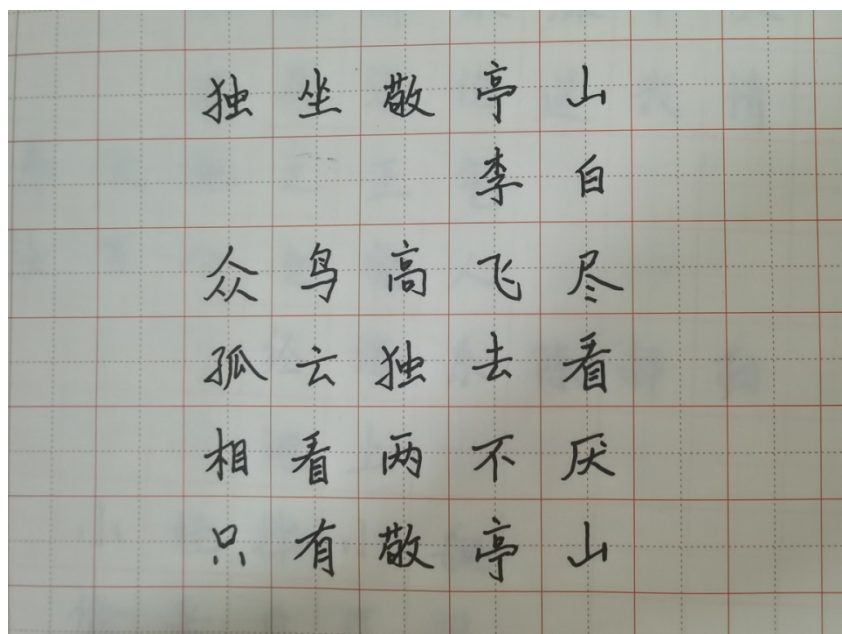 独坐敬亭山
李白
众鸟高飞尽
孤云独去看
相看两不厌
只有敬亭山